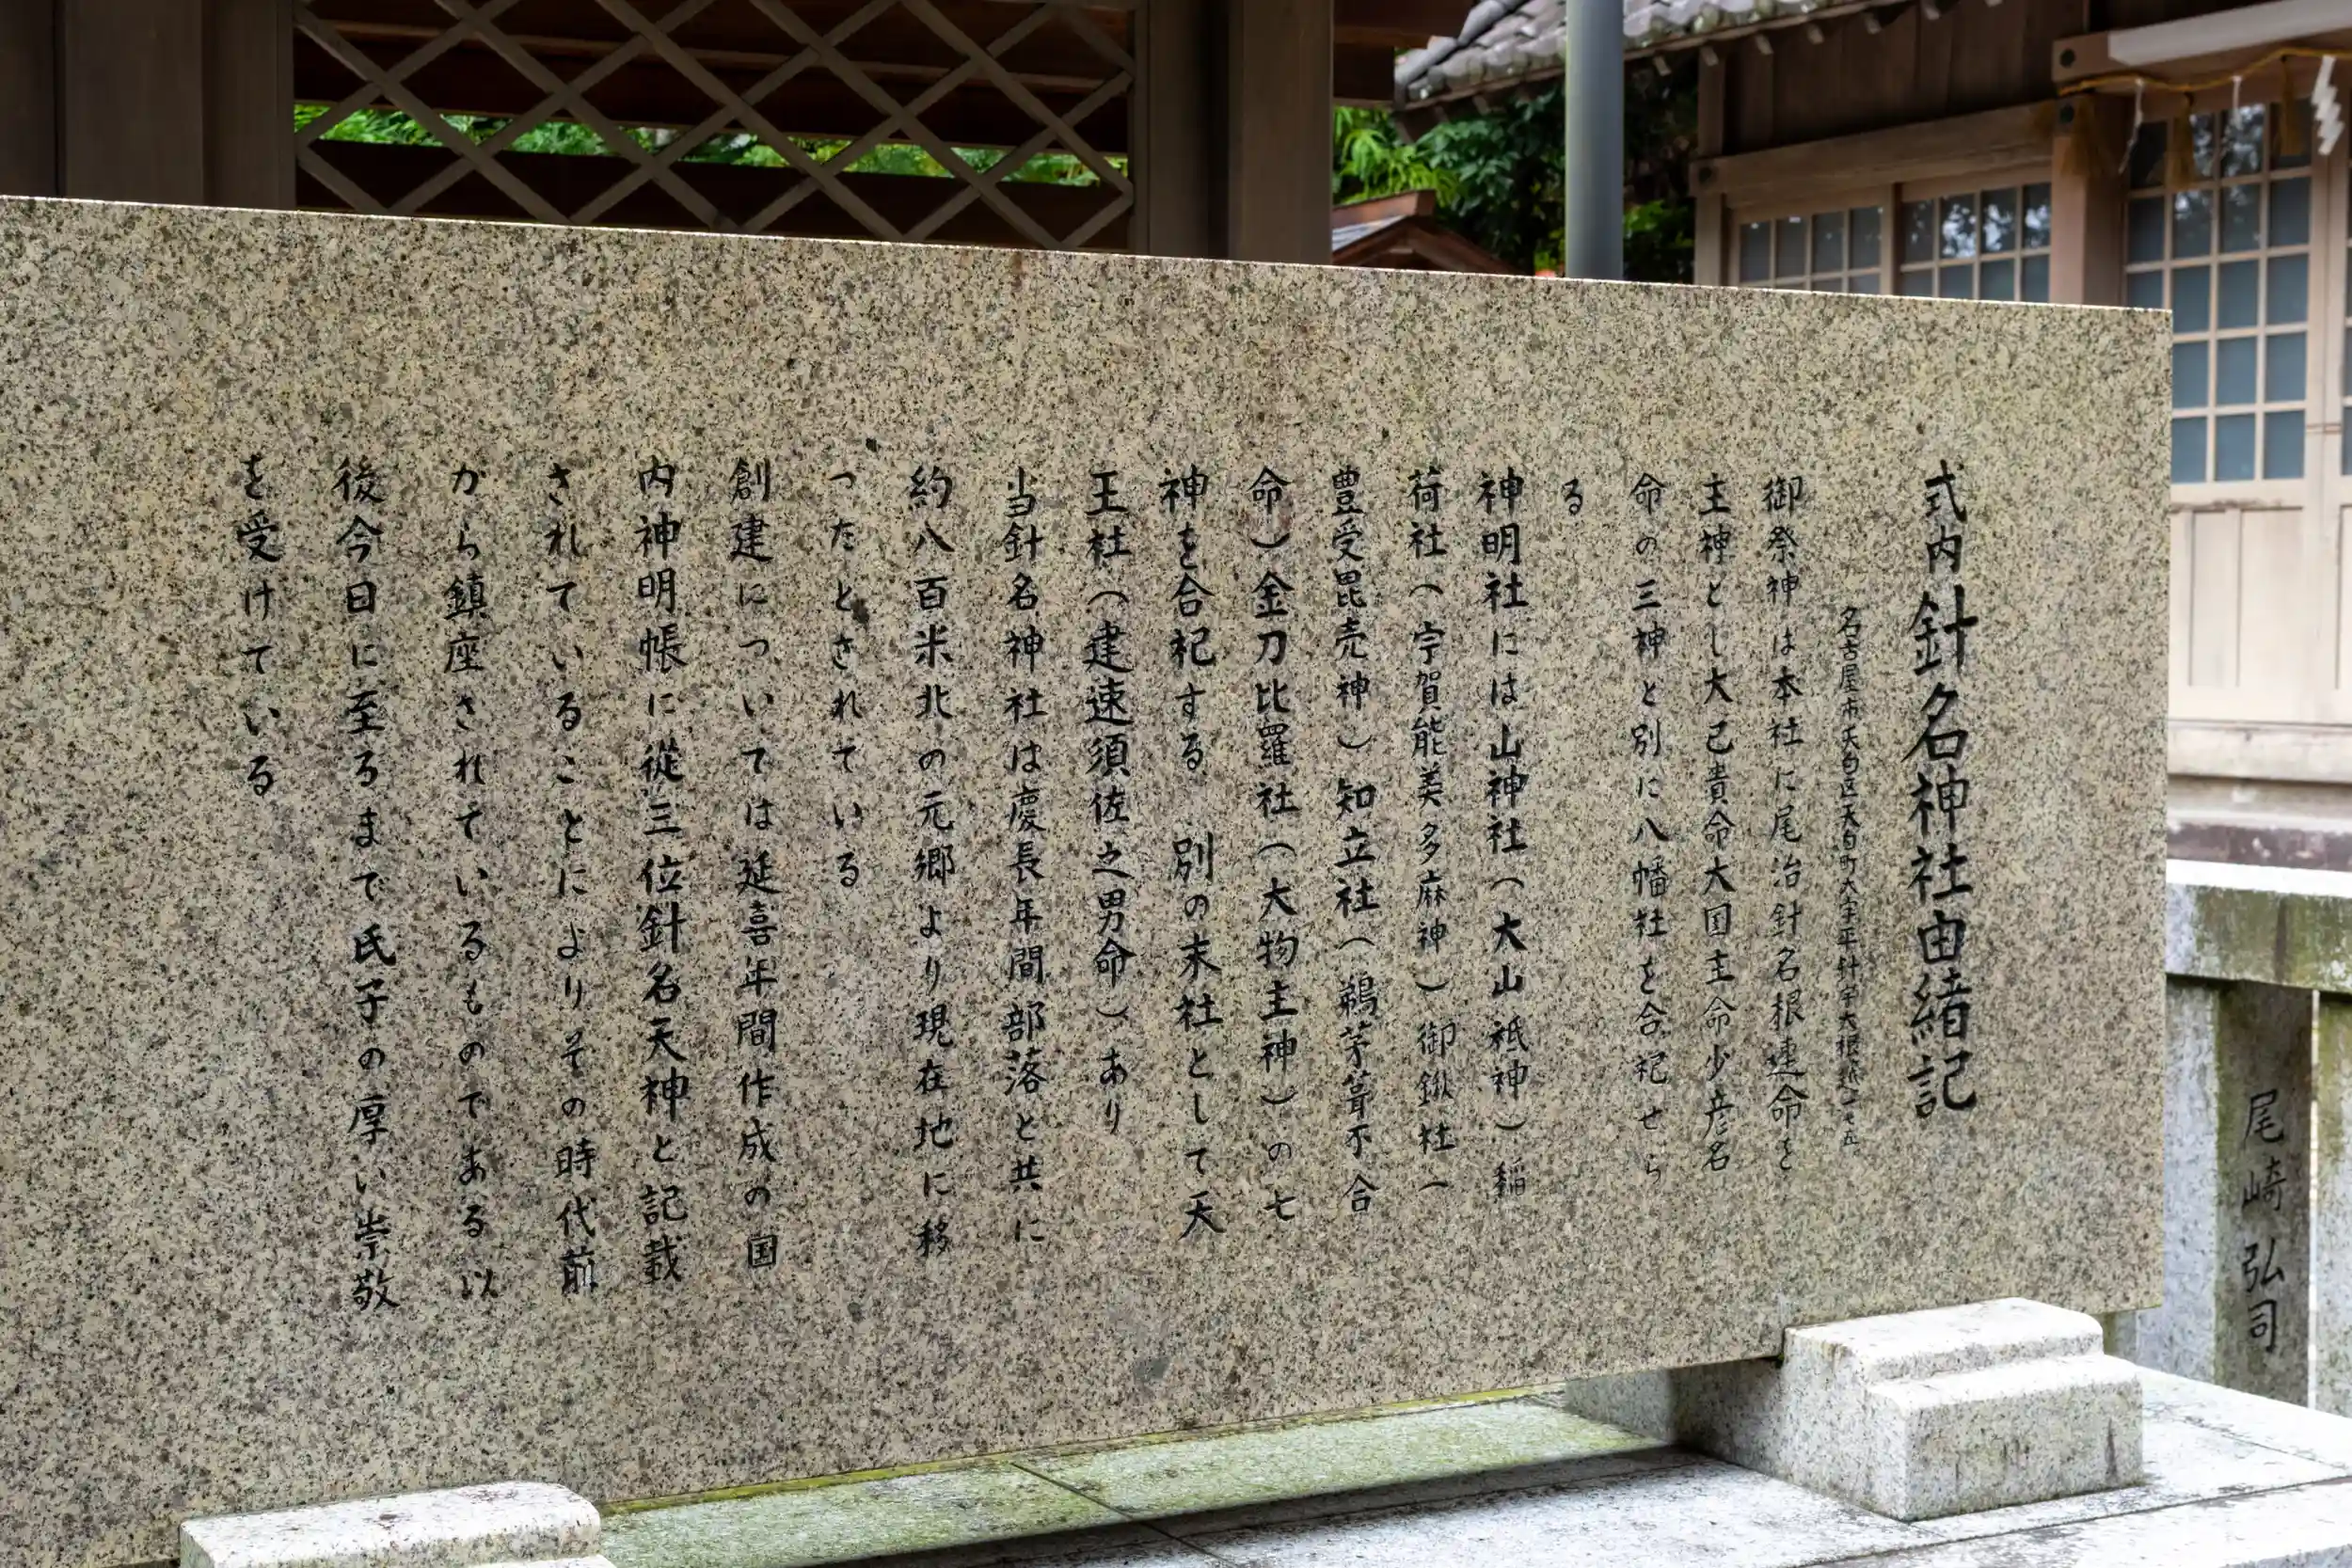 式内針名神社由緒記
名古屋市天白区天白町大字平針字大根越
御祭神は本社に尾治針名根連命を
主神とし大己貴命大国主命少彦名
命の三神と別に八幡社を合祀せら
る
神明社には山神社(大山祇神)稲
荷社(宇賀能美多麻神)御鍬社(
豊受毘売神)知立社(鵜茅葺不合
命)金刀比羅社(大物主神)の七
神を合祀する 別の末社として天
王社(建速須佐之男命)あり
当針名神社は慶長年間部落と共に
約八百米北の元郷より現在地に移
ったとされている
創建については延喜年間作成の国
内神明帳に従三位針名天神と記載
されていることによりその時代前
から鎮座されているものである以
後今日に至るまで氏子の厚い崇敬
を受けている
尾崎弘司